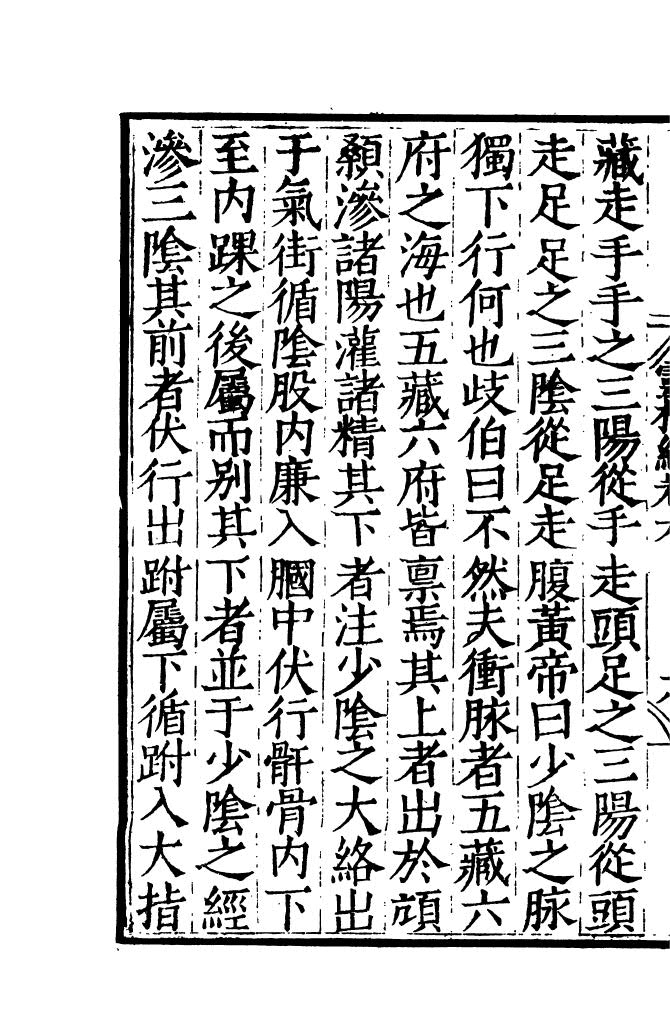 藏走手手之三陽從手走頭足之三陽從頭
走足足之三陰從足走腹黃帝曰少陰之脉
獨下行何也歧伯曰不然夫衝脉者五藏六
府之海也五藏六府皆禀焉其上者出於頏
顙滲諸陽灌諸精其下者注少陰之大絡出
于氣街循陰股内廉入膕中伏行骭骨内下
至内踝之後屬而别其下者並于少陰之經
滲三陰其前者伏行出跗屬下循跗入大指